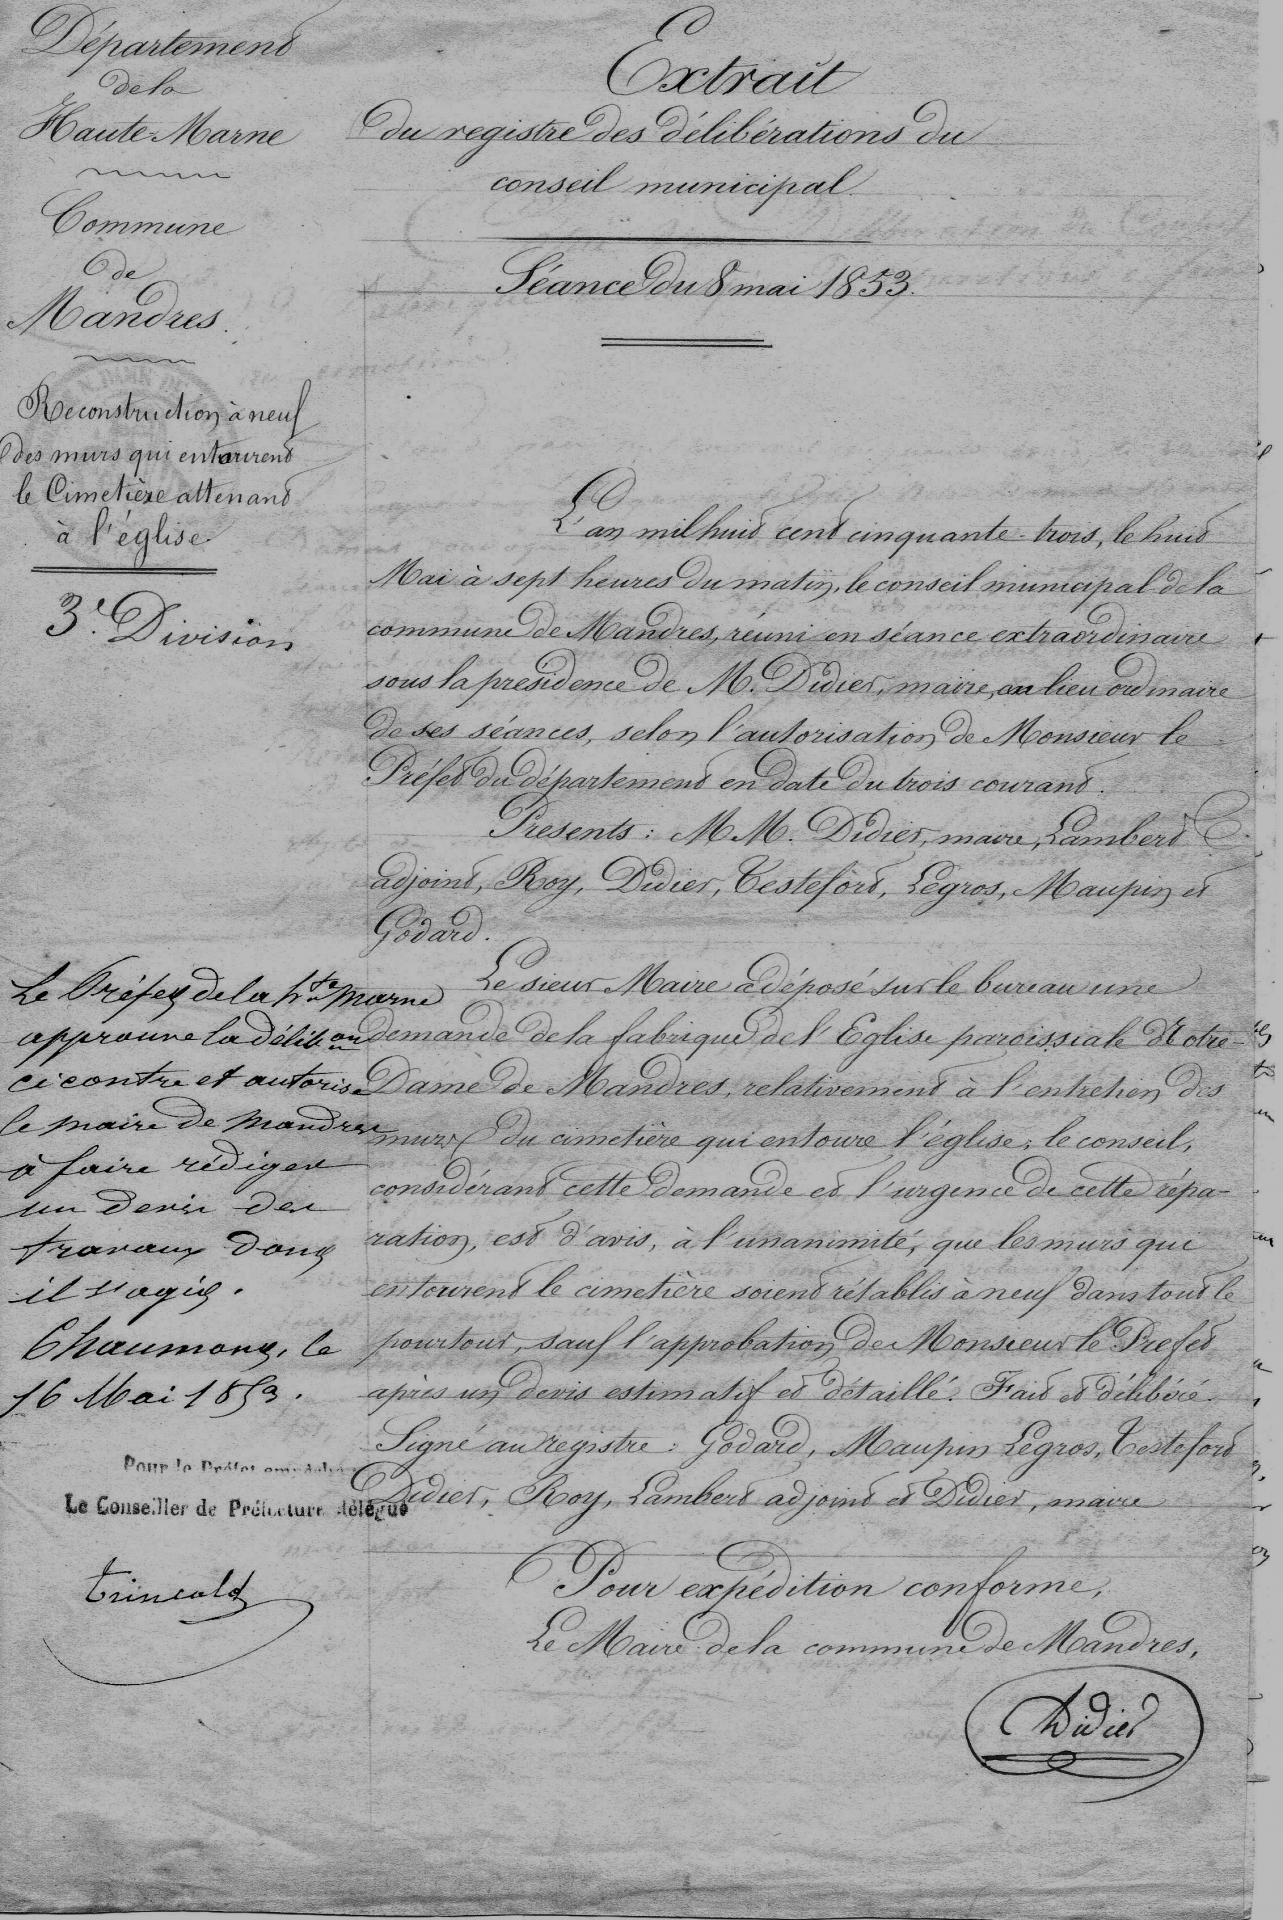 Département
de la
Haute-Marne
Commune
de
Mandres.
Reconstruction à neuf
des murs qui entourent
le Cimetière attenant
à l'église.
3e. Division
Extrait
du registre des délibérations du
conseil municipal
Séance du 8 mai 1853.
L'an mil huit cent cinquante-trois, le huit
Mai à sept heures du matin, le conseil municipal de la
commune de Mandres, réuni en séance extraordinaire
sous la présidence de M. Didier, maire, au lieu ordinaire
de ses séances, selon l'autorisation de Monsieur le
Préfet du département en date du trois courant.
Presents : M M. Didier, maire, Lambert
adjoint, Roy, Didier, Testefort, Legros, Maupin et
Godard.
Le sieur Maire a déposé sur le bureau une
demande de la fabrique de l'Eglise paroissiale Notre-
Dame de Mandres, relativement à l'entretien des
murs du cimetière qui entoure l'église ; le conseil,
considérant cette demande et l'urgence de cette répa-
ration, est d'avis, à l'unanimité, que les murs qui
entourent le cimetière soient rétablis à neuf dans tout le
pourtour, sauf l'approbation de Monsieur le Prefet
après un devis estimatif et détaillé. Fait et délibéré.
Signé au registre : Godard, Maupin Legros, Testefort
Didier, Roy, Lambert adjoint et Didier, maire
Pour expédition conforme,
Le Maire de la commune de Mandres,
Didier
Le Préfet de la hte marne
approuve la délibon
ci contre et autorise
le maire de mandres
à faire rédiger
un devis des
travaux dont
il s'agit.
Chaumont, le
16 Mai 1853.
Pour le Préfet empêché
Le Conseiller de Préfecture délégué